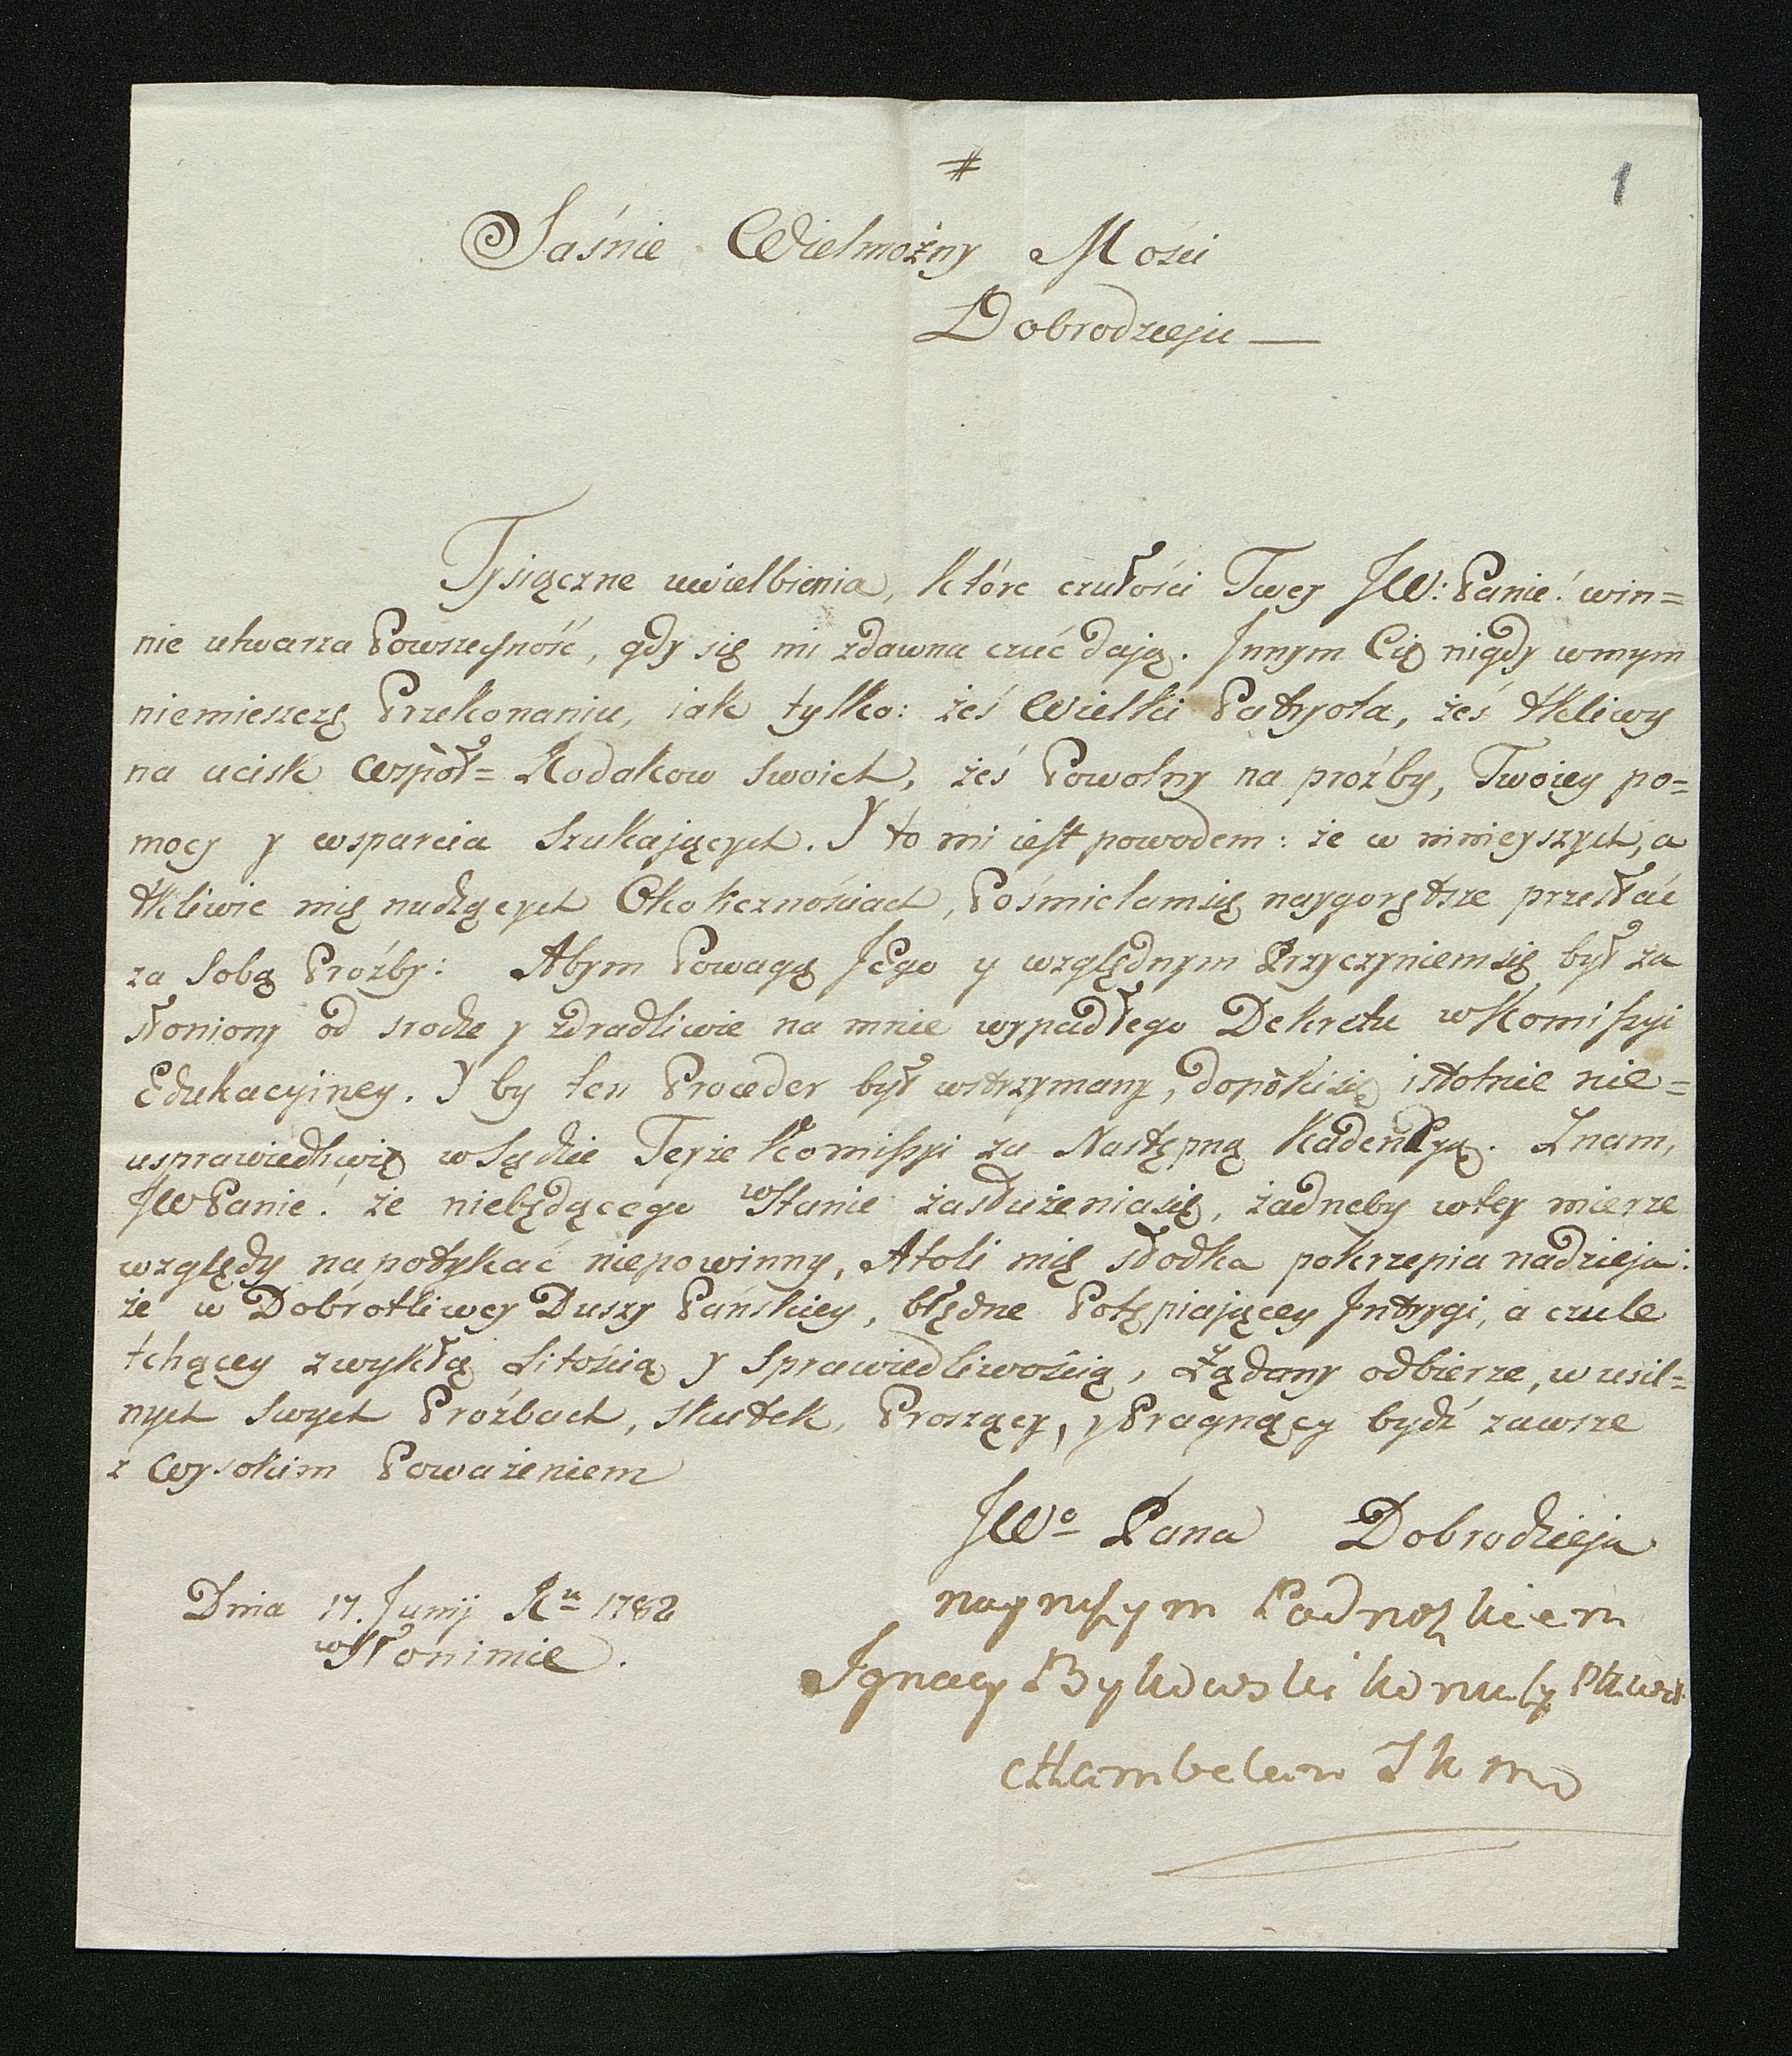 #
1
Jaśnie Wielmożny Mości
Dobrodzieju —
Tysiączne uwielbienia, które czułości Twey JW: Panie! win=
nie utwarza Powszechność, gdy się mi zdawna czuć dają. Innym Cię nigdy wmym
niemieszczę Przekonaniu, iak tylko: żeś Wielki Patryota, żeś tkliwy
na ucisk Współ= Rodakow swoich, żeś Powolny na proźby, Twoiey po=
mocy y wsparcia szukających. Y to mi iest powodem: że w ninieyszych, a
tkliwie mię nudzących Okolicznościach, Pośmielamsię naygorętsze przesłać
za sobą Proźby: Abym Powagą JEgo y względnym Przyczyniemsię był za
słoniony od srodze y zdradliwie na mnie wypadłego Dekretu wKomissyi
Edukacyiney. Y by ten Proceder był wstrzymany, dopókisię istotnie nie=
usprawiedliwię wSądzie Teyże Komissyi za Następną Kadencyą. Znam,
JWPanie! że niebędącego wStanie zasłużeniasię, żadneby wtey mierze
względy napotykać niepowinny, Atoli mię słodka pokrzepia nadzieja:
że w Dobrotliwey Duszy Pańskiey, błędne Potępiającey Intrygi, a czule
tchącey zwykłą Litością y Sprawiedliwością, Żądany odbierze, w usil=
nych swych Proźbach, skutek, Proszący, y Pragnący bydź zawsze
z Wysokim Poważeniem
JWo Pana Dobrodzieja
nayniższym Podnożkiem
Ignacy Bykowski
chambelan J K mo
Dnia 17. Junij Ru 1782
wSłonimie.